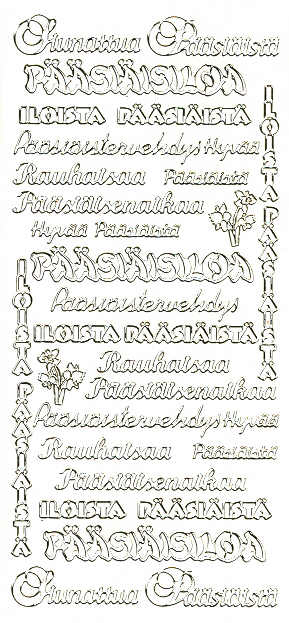 Siunattua Pääsiäistä
PÄÄSIÄISILOA
ILOISTA PÄÄSIÄISTÄ
Pääsiäistervehdys Hyvää
Rauhaisaa Pääsiäistä
Pääsiäisenaikaa
Hyvää Pääsiäistä
ILOISTA PÄÄSIÄISTÄ
PÄÄSIÄISILOA
Pääsiäistervehdys
ILOISTA PÄÄSIÄISTÄ
Rauhaisaa
Pääsiäisenaikaa
Pääsiäistervehdys Hyvää
Rauhaisaa Pääsiäistä
Pääsiäisenaikaa
ILOISTA PÄÄSIÄISTÄ
ILOISTA PÄÄSIÄISTÄ
PÄÄSIÄISILOA
Siunattua Pääsiäistä